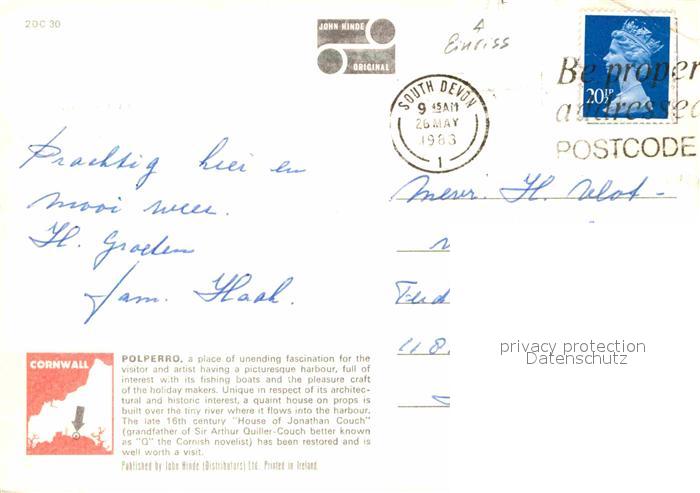 2DC 30
JOHN HINDE
ORIGINAL
Einriss
SOUTH DEVON
9 15AM
26 MAY
1983
1
Be proper
addressed
POSTCODE
20½P
Prachtig hier en
mooi weer.
H. Groeten
fam. Haak.
Mevr. H.
118.
privacy protection
Datenschutz
CORNWALL
POLPERRO, a place of unending fascination for the
visitor and artist having a picturesque harbour, full of
interest with its fishing boats and the pleasure craft
of the holiday makers. Unique in respect of its architec-
tural and historic interest, a quaint house on props is
built over the tiny river where it flows into the harbour.
The late 16th century "House of Jonathan Couch"
(grandfather of Sir Arthur Quiller-Couch better known
as "Q" the Cornish novelist) has been restored and is
well worth a visit.
Published by John Hinde (Distributors) Ltd. Printed in Ireland